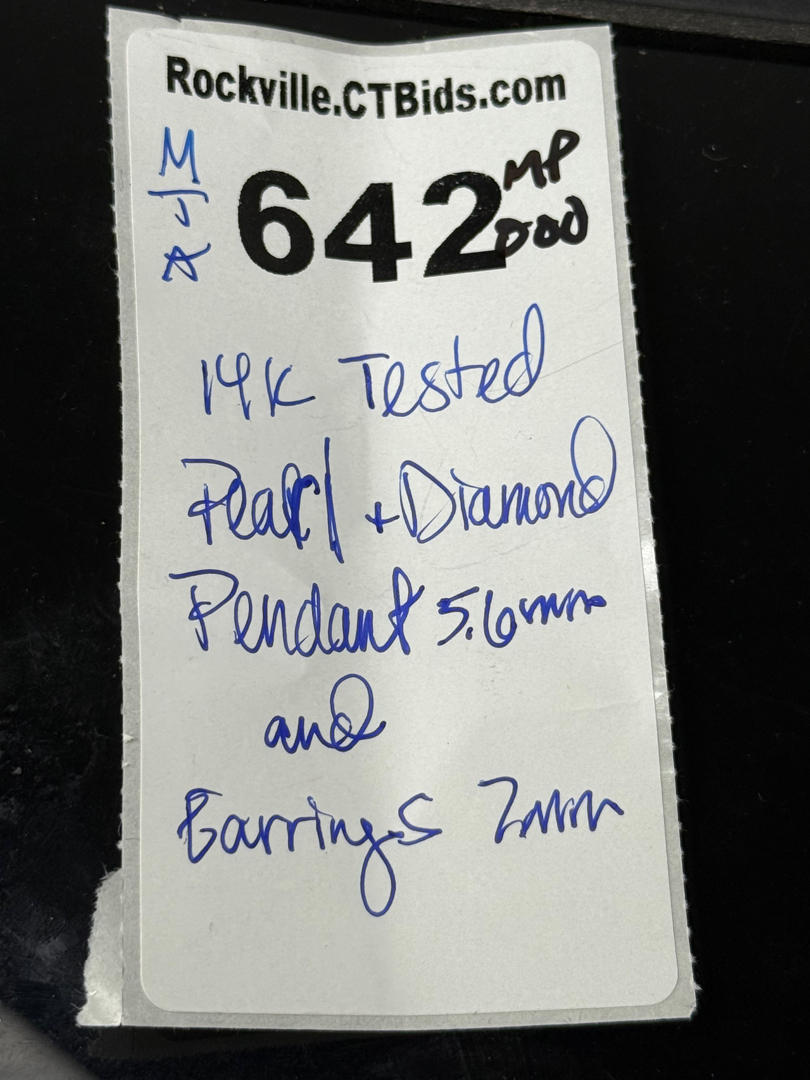 Rockville.CTBids.com
M
J
A
642
MP
000
14K Tested
Pearl + Diamond
Pendant 5.6mm
and
Earrings 7mm